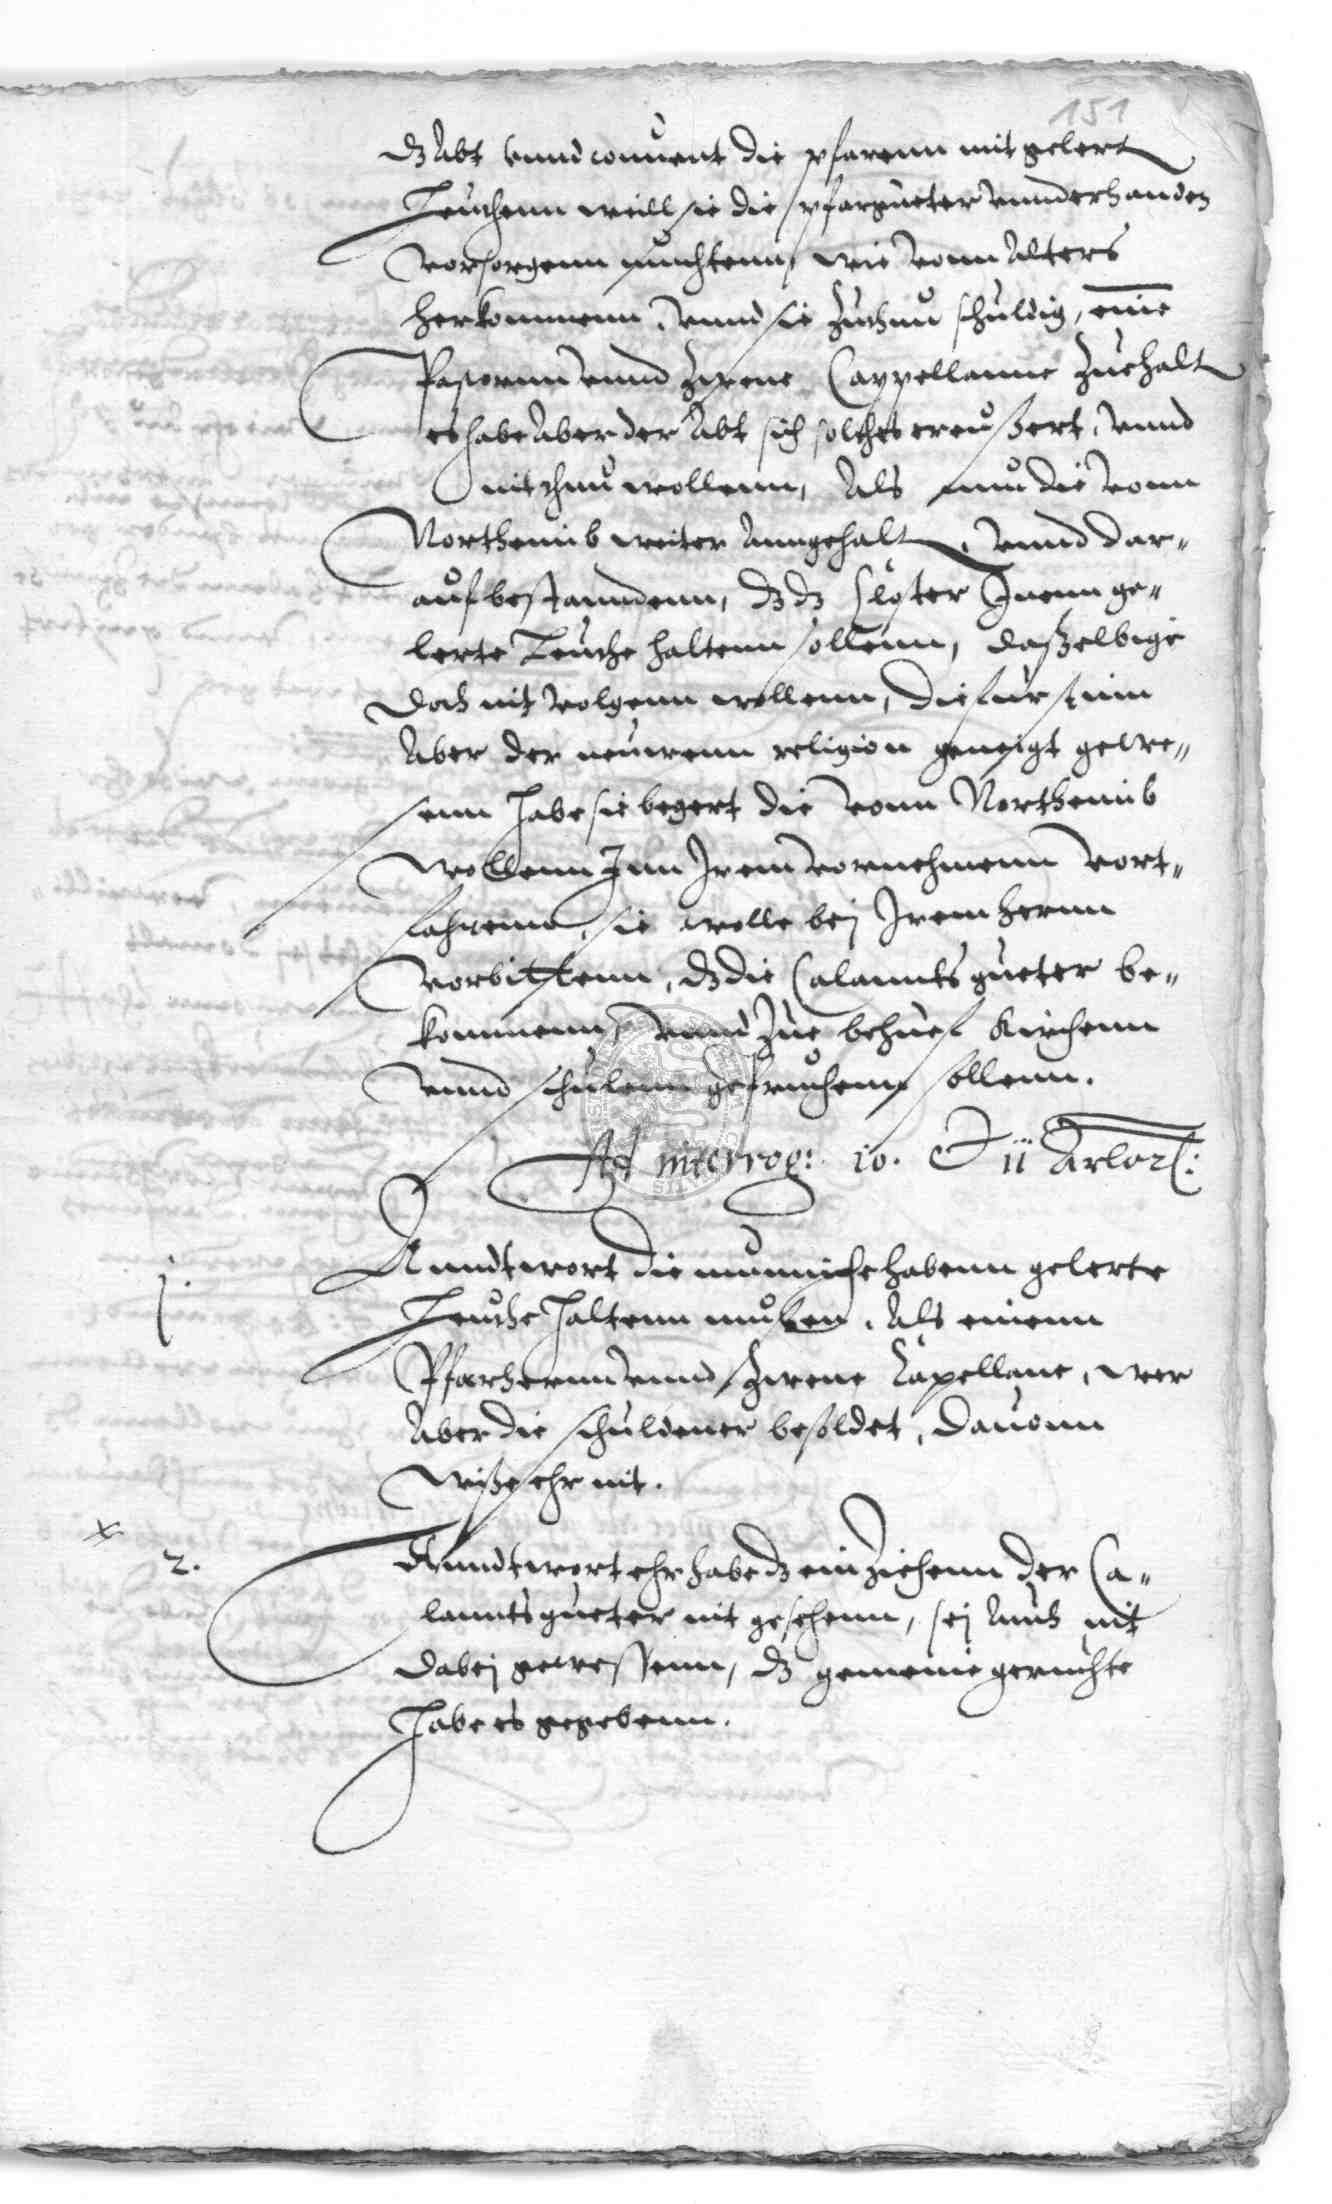 151
dz Abt vnnd conuent die pfarenn mit gelert
Leuthenn weill sie die pfargueter vnnderhanden
vorsorgenn muchtenn, wie vonn Alters
herkommenn, vnnd sie zuthun schuldig, eine
Pastornn vnnd zwene Cappellanne zuehalt
es habe Aber der Abt sich solches ereußert, vnnd
nit thun wollenn, Als nun die vonn
Northeimb weiter Anngehalt, vnnd dar„
auf bestanndenn, dz dz Closter Inenn ge„
lerte Leuthe haltenn sollenn, daßelbige
doch nit volgenn wollenn, die furstinn
Aber der neuwenn religion geneigt gewe„
senn habe sie begert die vonn Northeimb
wollenn Inn Irem vornehmenn vort„
fahrenn, sie wolle bei Irem hernn
vorbittenn, dz die Calanntsgueter be„
kommenn, vnnd zue behuef Kirchenn
vnnd schulenn gebruchenn sollenn.
Ad interrog: 10. et 11 Arlor:
1.
Anndtwort die munniche habenn gelerte
Leuthe haltenn mußen, Als einenn
Pfarhernn vnnd zwene Capellane, wer
Aber die schuldener besoldet, dauonn
wiße ehr nit.
x 2.
Anndtwort ehr habe dz einziehenn der Ca„
lanntsgueter nit gesehenn, sej Auch nit
dabej gewessenn, dz gemeine geruchte
habe es gegebenn.